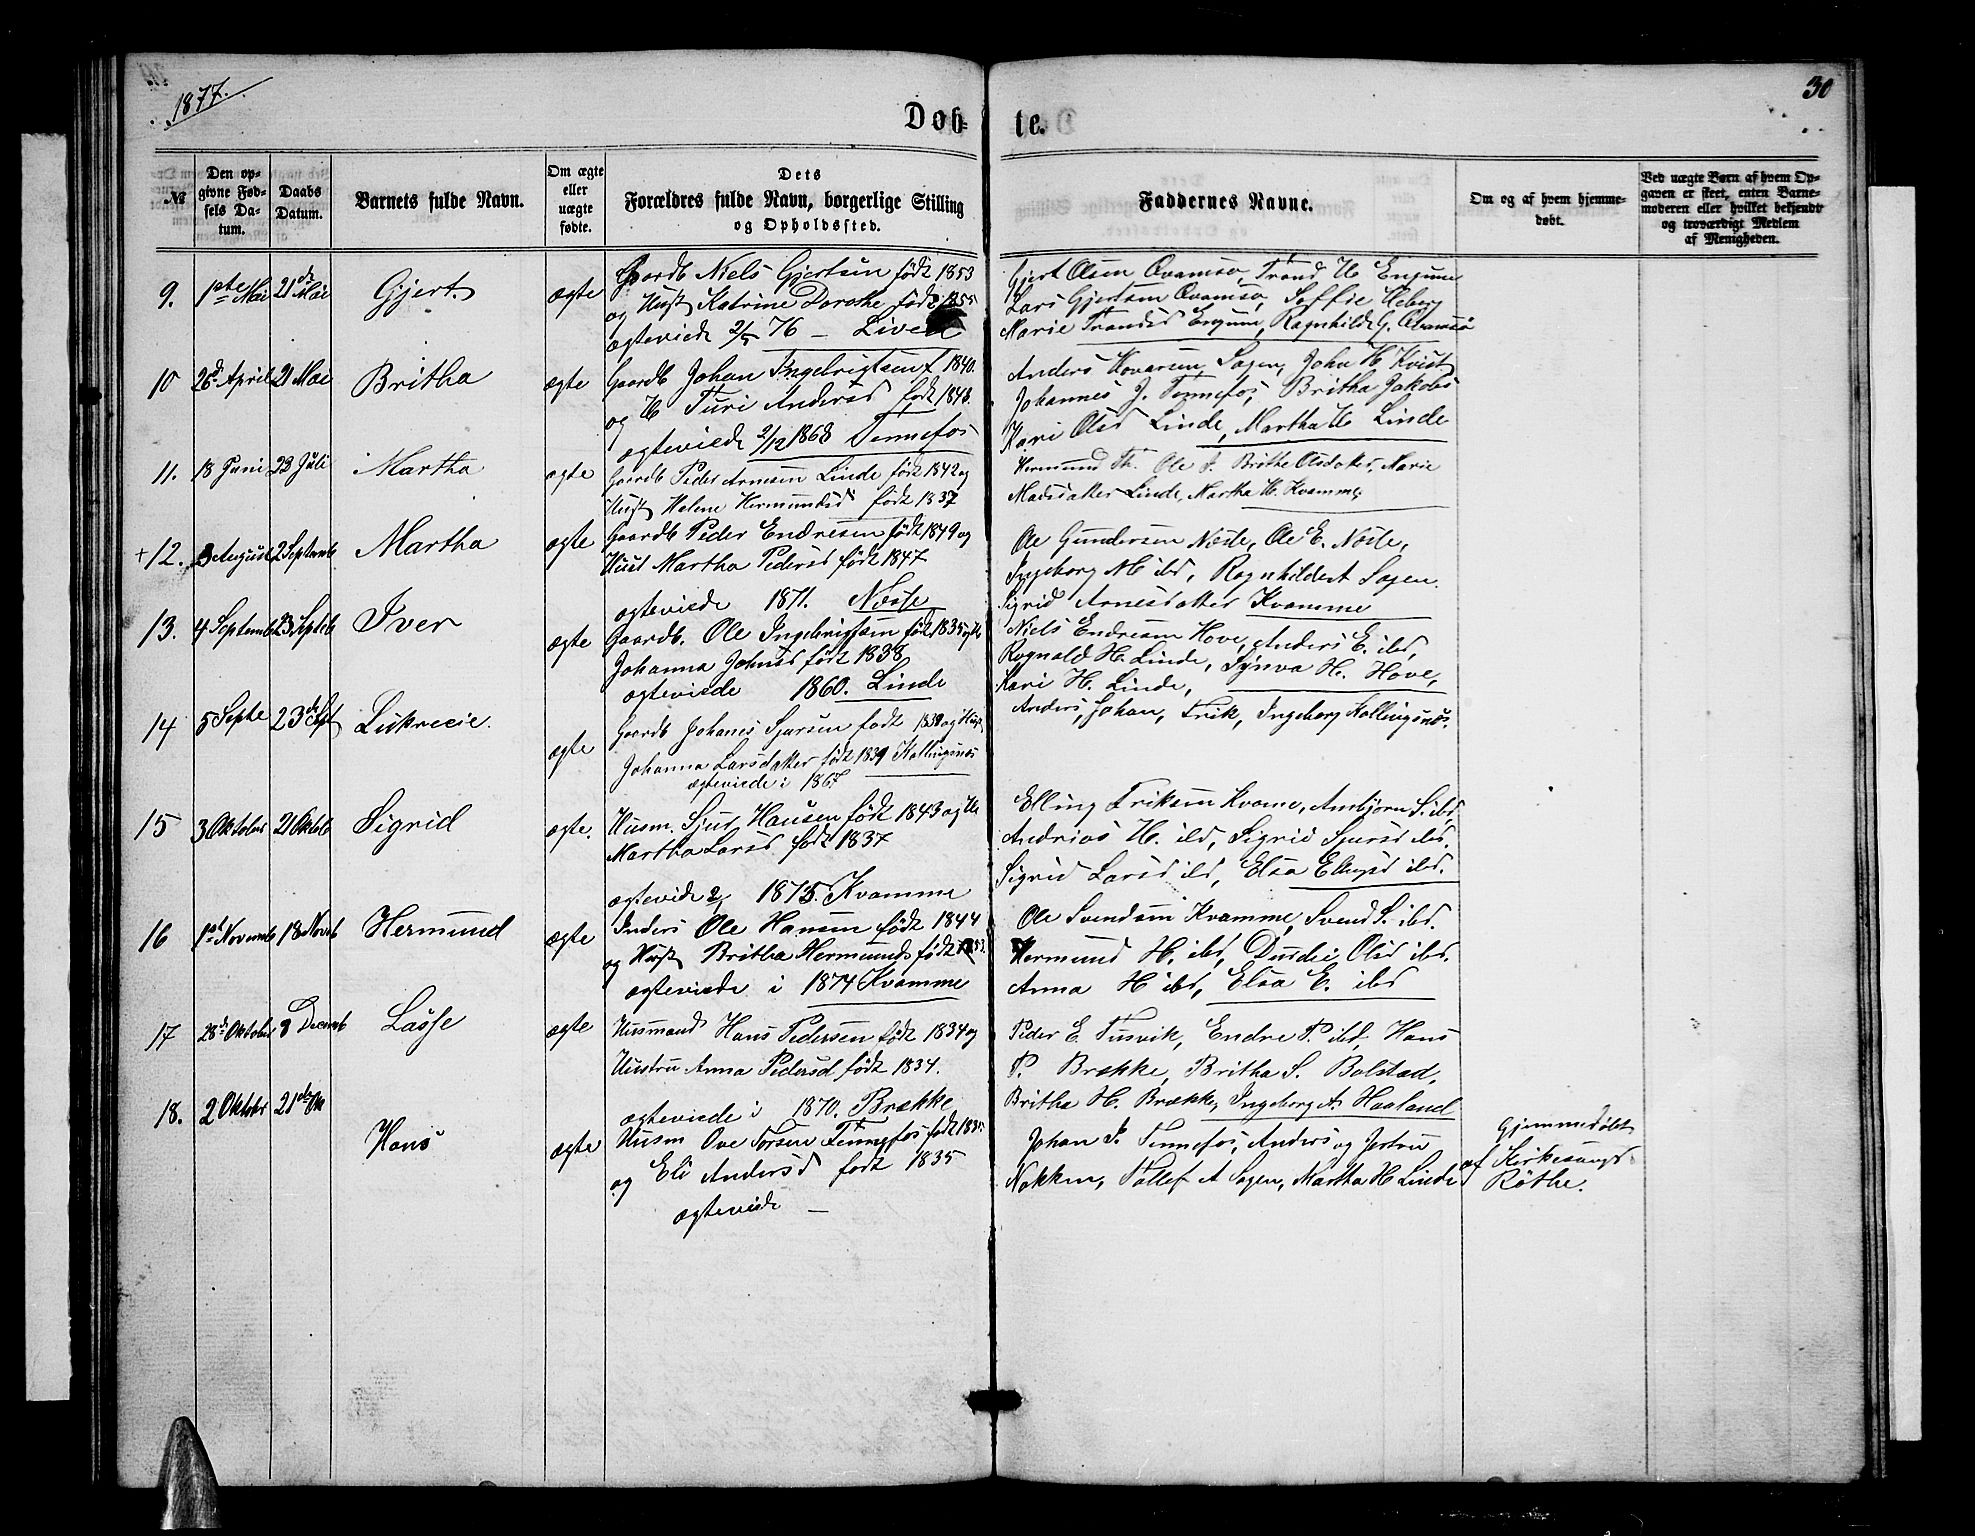 1877.
30
Døb-
te.
№
Den op-
givne Fød-
sels Da-
tum.
Daabs
Datum.
Barnets fulde Navn.
Om ægte
eller
uægte
fødte.
Dets
Forældres fulde Navn, borgerlige Stilling
og Opholdssted.
Faddernes Navne.
Om og af hvem hjemme-
døbt.
Ved uægte Børn af hvem Op-
gaven er skeet, enten Barne-
moderen eller hvilket bekjendt
og troværdigt Medlem
af Menigheden.
9. 1ste Mai 21de Mai Gjert. ægte
Gaardb Niels Gjertsen født 1853
og Hust Katrine Dorothe født 1855
ægteviede 2/5 76 –
Gjert Olsen Qvamsø, Trond H Engum
Lars Gjertsen Qvamsø, Soffie Heberg
Marie Trondsd Engum, Ragnhild G. Qvamsø
10 26d April 21 Mai Britha ægte
Gaardb Johan Ingebrigtsen f 1840.
og H Turi Andersd født 1843.
ægteviede 2/12 1868 Tennefos
Anders Hovarsen Sagen, John H Kvist
Johannes J. Tennefos, Britha Jakobs
Kari Olsd Linde, Martha H Linde
11. 18 Juni 23 Juli Martha ægte
Gaardb Peder Arnesen Linde født 1842 og
Hust Helene Hermundsd født 1837
Hermund Th. Ole P. Brithe Olsdatter, Marie
Madsdatter Linde, Martha H. Kvamme
+12. 3 August 2 Septemb Martha ægte
Gaardb Peder Endresen født 1849 og
Hust Martha Pedersd født 1847
ægteviede 1871. Næse
Ole Gundersen Næse, Ole E. Næse,
Ingeborg M ibd, Ragnhild A Sagen.
Sigrid Arnesdatter Kvamme
13. 4 Septemb 23 Septb Iver ægte
Gaardb. Ole Ingebrigtsen født 1835 og H
Johanna Johnsd født 1838
ægteviede 1860. Linde
Niels Endresen Hove, Anders E. ibd,
Rognald H. Linde, Synva H. Hove,
Kari H. Linde,
14 5 Septe 23de Spt Lukrecie. ægte
Gaardb Johanes Sjursen født 1830 og Hust
Johanna Larsdatter født 1839 Kollingsnæs
ægteviede i 1867
Anders, Johan, Erik, Ingeborg Kollingsnæs.
15 3 Oktober 21 Oktob Sigrid ægte.
Husm. Sjur Hansen født 1843 og H
Martha Larsd. født 1837
ægtevide 1875. Kvamme
Elling Eriksen Kvame, Ambjørn S. ibd,
Andrias H. ibd, Sigrid Sjursd ibd.
Sigrid Larsd ibd, Elsa Ellingsd ibd.
16 1st Novemb 18 Novb Hermund ægte
Inders Ole Hansen født 1844
og Hust Britha Hermunds født 1853.
ægteviede i 1874 Kvamme
Ole Svendsen Kvamme, Svend S. ibd.
Hermund H. ibd, Durdei Olsd ibd.
Anna H ibd, Elsa E. ibd
17 28de Oktober 9 Decemb Lasse ægte
Husmand Hans Pedersen født 1834 og
Hustru Anna Pedersd født 1834.
ægteviede i 1870. Brække
Peder E. Tusvik, Endre P. ibd, Hans
P. Brække, Britha S. Bolstad,
Britha H. Brække, Ingeborg A. Haaland
18. 2 Oktober 21de Ok Hans ægte
Husm Ove Torsen Tennefos født 1835
og Eli Andersd født 1835
ægteviede –
Johan I. Tennefos, Anders og Jertru
Nokken, Tollef A Sagen, Martha H Linde
Gjemmedøbt
af Kirkesang
Røthe.